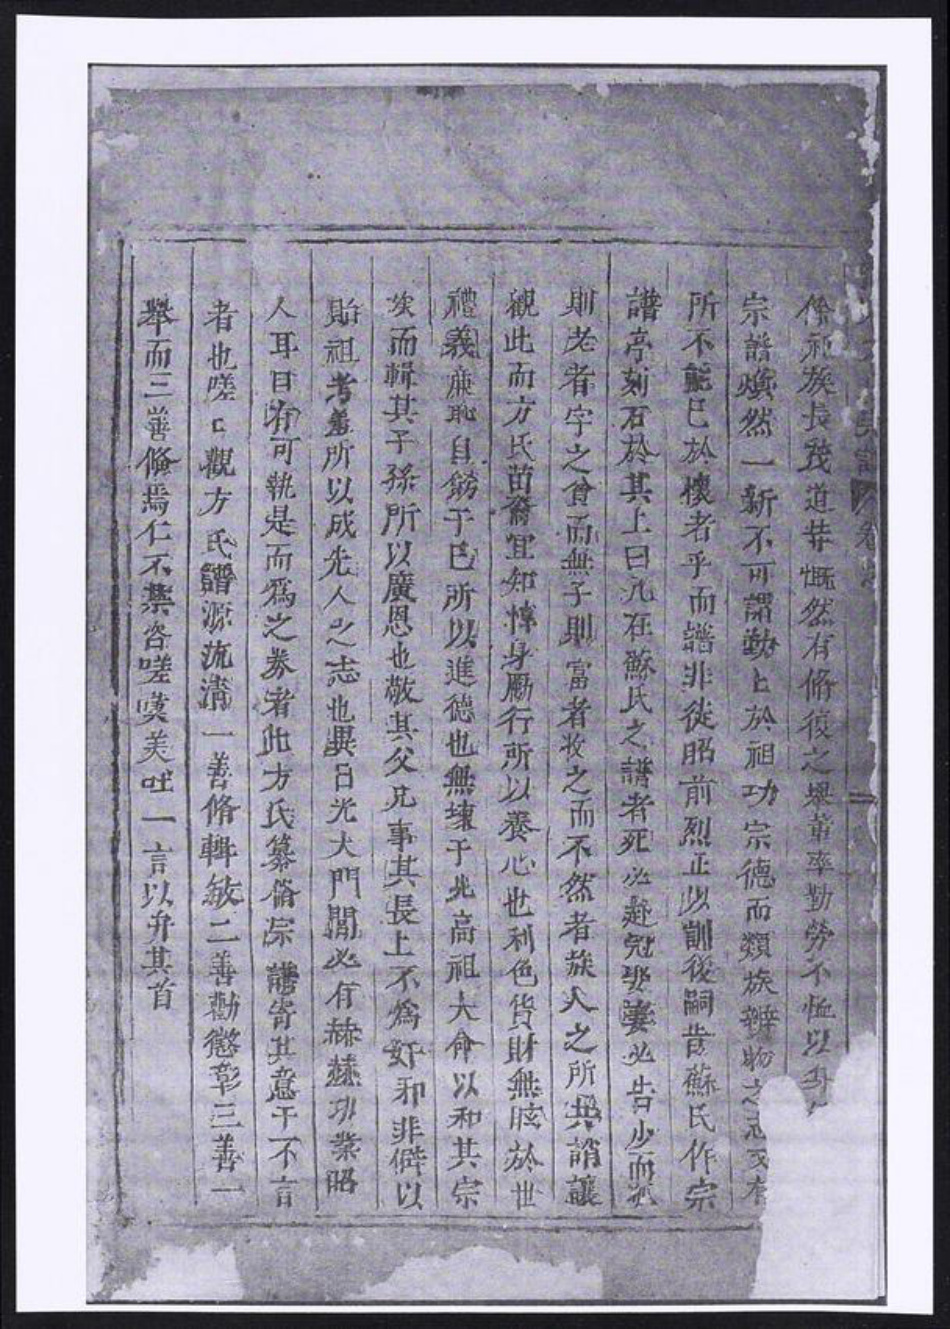 族長茂道井慨然有脩復之舉董率勤勞不恤以
宗譜煥然一新不可謂勤上於祖功宗德而類族辨物之志又有
所不能已於懷者乎而譜非徒昭前烈正以訓後嗣昔蘇氏作宗
譜亭刻石於其上曰凡在蘇氏之譜者死必赴冠娶妻必告少而孤
則老者字之貧而無子則富者收之而不然者族人之所共誚讓
觀此而方氏苗裔宜知惇身勵行所以養心也利色貨財無眩於世
禮義廉恥自飭于已所以進德也無壞于光高祖大命以和其宗
族而輯其子孫所以廣恩也敬其父兄事其長上不為奸邪非僻以
貽祖考羞所以成先人之志也異日光大門閭必有赫赫功業昭
人耳目有可執是而為之券者此方氏纂脩宗譜寄其意于不言
者也嗟匚觀方氏譜源流清一善脩輯敏二善勸懲彰三善一
舉而三善脩焉仁不禁咨嗟嘆美吐一言以弁其首